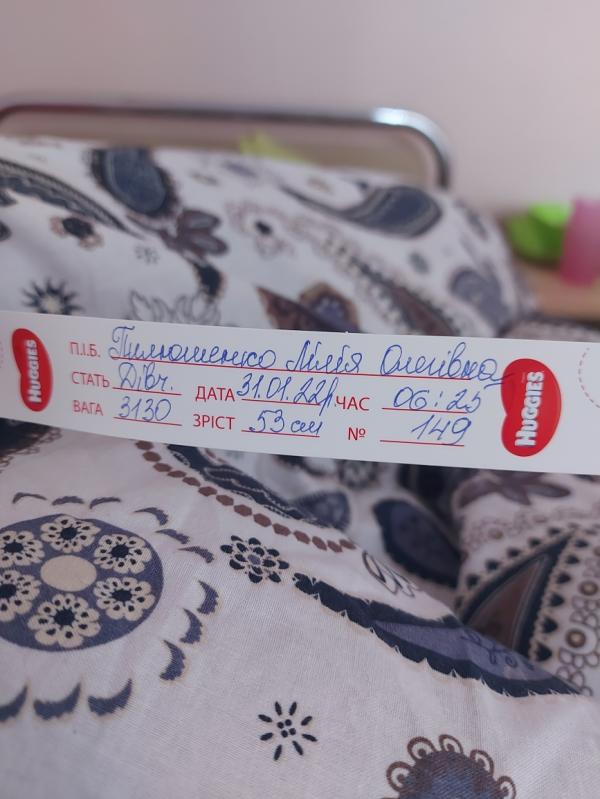 HUGGIES
П.І.Б. Пилюшенко Лілія Олегівна
СТАТЬ Дівч. ДАТА 31.01.22р. ЧАС 06:25
ВАГА 3130 ЗРІСТ 53 см № 149
HUGGIES